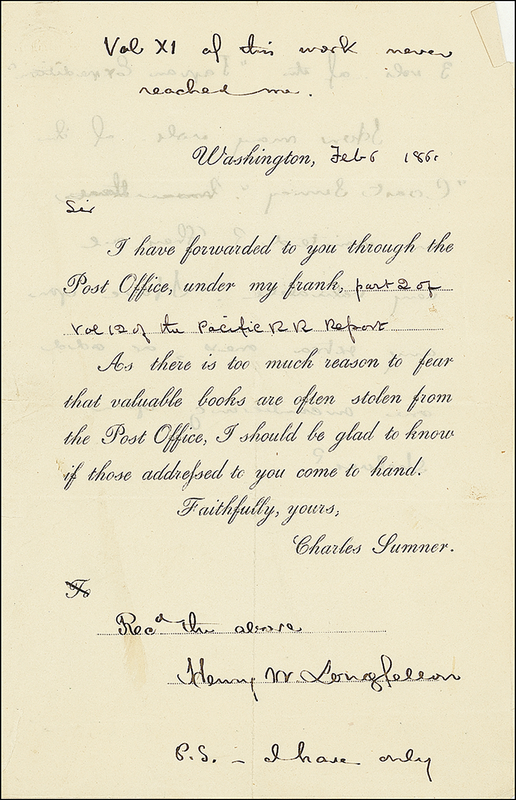 Vol XI of this work never
reached me.
Washington, Feb 6 186
Sir
I have forwarded to you through the
Post Office, under my frank, part 2 of
Vol 12 of the Pacific R R Report
As there is too much reason to fear
that valuable books are often stolen from
the Post Office, I should be glad to know
if those addressed to you come to hand.
Faithfully, yours,
Charles Sumner.
To
Recd the above
Henry W. Longfellow
P.S. – I have only